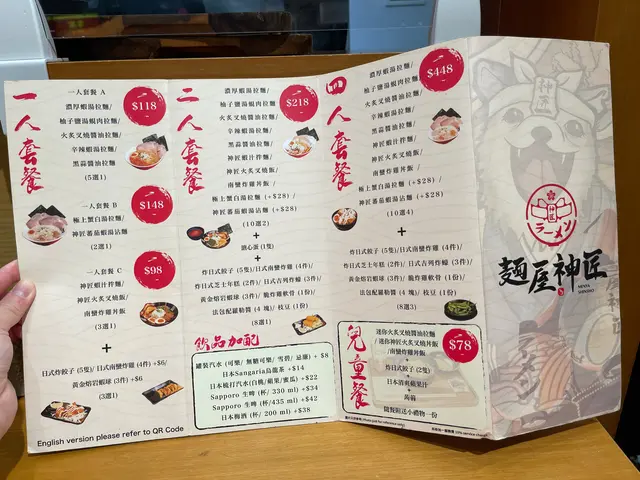 一人套餐
一人套餐 A
$118
濃厚蝦湯拉麵/
柚子鹽湯蜆肉拉麵/
火炙叉燒醬油拉麵/
辛辣蝦湯拉麵/
黑蒜醬油拉麵
(5選1)
一人套餐 B
$148
極上蟹白湯拉麵/
神匠番茄蝦湯沾麵
(2選1)
一人套餐 C
$98
神匠蝦汁拌麵/
神匠火炙叉燒飯/
南蠻炸雞丼飯
(3選1)
+
日式炸餃子 (5隻)/日式南蠻炸雞 (4件) +$6/
黃金熔岩蝦球 (3件) +$6
(3選1)
English version please refer to QR Code
二人套餐
$218
濃厚蝦湯拉麵/
柚子鹽湯蜆肉拉麵/
火炙叉燒醬油拉麵/
辛辣蝦湯拉麵/
黑蒜醬油拉麵/
神匠蝦汁拌麵/
神匠火炙叉燒飯/
南蠻炸雞丼飯/
極上蟹白湯拉麵 (+$28) /
神匠番茄蝦湯沾麵 (+$28)
(10選2)
+
糖心蛋 (1隻)
+
炸日式餃子 (5隻)/日式南蠻炸雞 (4件)/
炸日式芝士年糕 (2件)/
黃金熔岩蝦球 (3件)/脆炸雞軟骨 (1份)/
法包配羅勒醬 (4塊)/ 枝豆 (1份)
(8選1)
飲品加配
罐裝汽水 (可樂/ 無糖可樂/ 雪碧/ 忌廉) + $8
日本Sangaria烏龍茶 +$14
日本梳打汽水(白桃/蘋果/蜜瓜) +$22
Sapporo 生啤 (杯/ 330 ml) +$34
Sapporo 生啤 (杯/435 ml) +$42
日本梅酒 (杯/ 200 ml) +$38
四人套餐
$448
濃厚蝦湯拉麵/
柚子鹽湯蜆肉拉麵/
火炙叉燒醬油拉麵/
辛辣蝦湯拉麵/
黑蒜醬油拉麵/
神匠蝦汁拌麵/
神匠火炙叉燒飯/
南蠻炸雞丼飯 /
極上蟹白湯拉麵 (+$28) /
神匠番茄蝦湯沾麵 (+$28)
(10選4)
+
炸日式餃子 (5隻)/日式南蠻炸雞 (4件)/
炸日式芝士年糕 (2件)/
黃金熔岩蝦球 (3件)/脆炸雞軟骨 (1份)/
法包配羅勒醬 (4塊)/ 枝豆 (1份)
(8選3)
兒童餐
$78
迷你火炙叉燒醬油拉麵
/ 迷你神匠火炙叉燒丼飯/
南蠻炸雞丼飯
+
炸日式餃子 (2隻)
+
日本清爽蘋果汁
+
蒟蒻
隨餐附送小禮物一份
神匠
神匠
ラーメン
麵屋神匠
MENYA SHINSHO